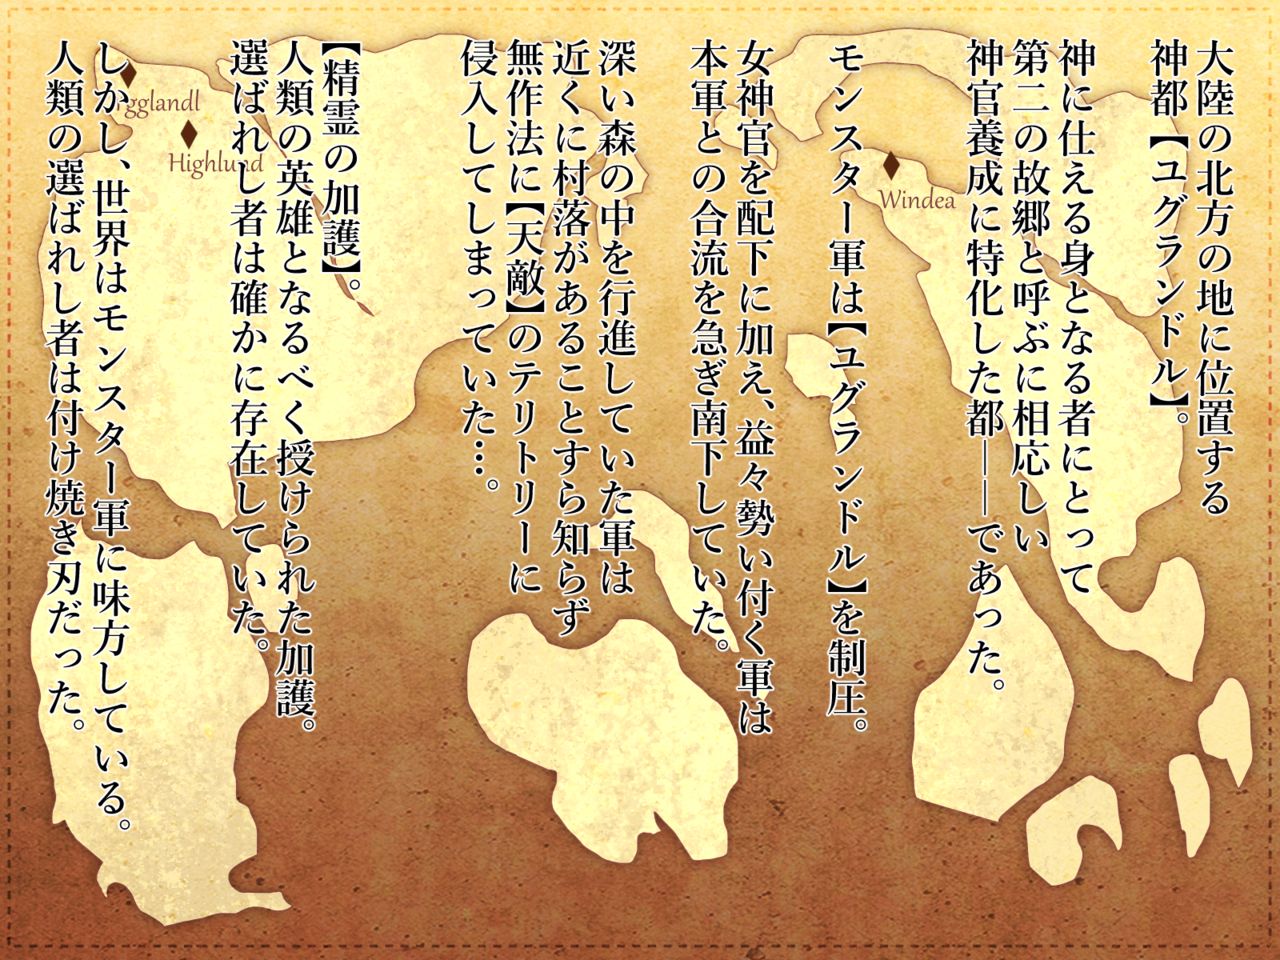 大陸の北方の地に位置する
神都【ユグランドル】。
神に仕える身となる者にとって
第二の故郷と呼ぶに相応しい
神官養成に特化した都――であった。
モンスター軍は【ユグランドル】を制圧。
女神官を配下に加え、益々勢い付く軍は
本軍との合流を急ぎ南下していた。
深い森の中を行進していた軍は
近くに村落があることすら知らず
無作法に【天敵】のテリトリーに
侵入してしまっていた…。
【精霊の加護】。
人類の英雄となるべく授けられた加護。
選ばれし者は確かに存在していた。
しかし、世界はモンスター軍に味方している。
人類の選ばれし者は付け焼き刃だった。
Highlund
Windea